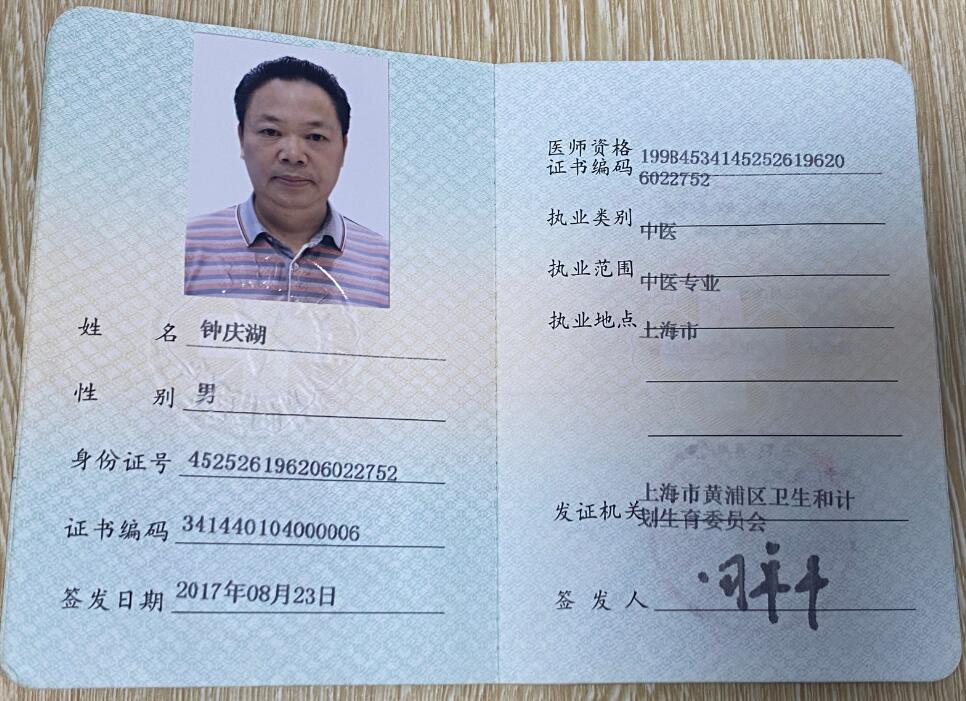 姓名 钟庆湖
性别 男
身份证号 452526196206022752
证书编码 341440104000006
签发日期 2017年08月23日
医师资格
证书编码 199B4534145252619620
6022752
执业类别 中医
执业范围 中医专业
执业地点 上海市
发证机关 上海市黄浦区卫生和计
划生育委员会
签发人